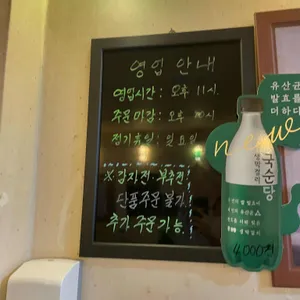 영업 안내
영업시간 : 오후 11시.
주문마감 : 오후 10시
정기휴일 : 일요일
※ 감자전. 부추전!
단품주문 불가!
추가 주문 가능!
유산균
발효를
더하다
new
국순당
생막걸리
4,000원